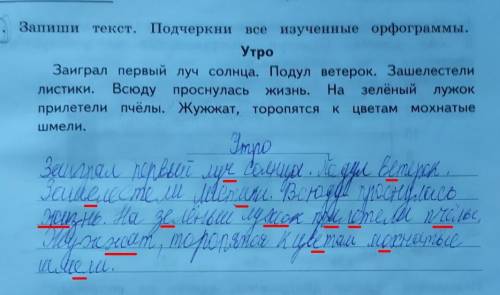 . Запиши текст. Подчеркни все изученные орфограммы.
Утро
Заиграл первый луч солнца. Подул ветерок. Зашелестели
листики. Всюду проснулась жизнь. На зелёный лужок
прилетели пчёлы. Жужжат, торопятся к цветам мохнатые
шмели.
Утро
Заиграл первый луч солнца. Подул ветерок.
Зашелестели листики. Всюду проснулась
жизнь. На зелёный лужок прилетели пчёлы.
Жужжат, торопятся к цветам мохнатые
шмели.